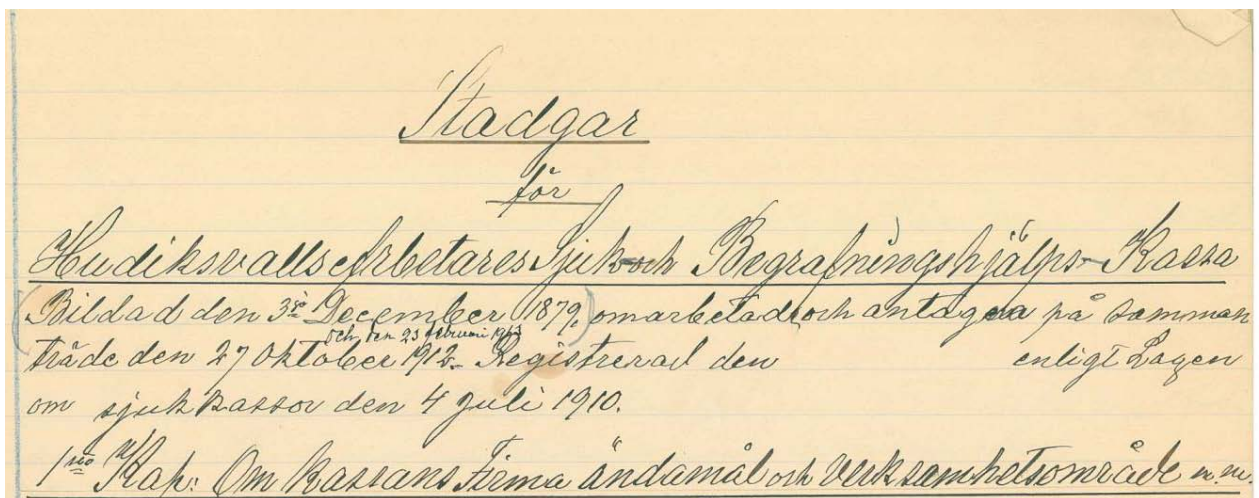 Stadgar
för
Hudiksvalls Arbetares Sjuk- och Begrafningshjälps-Kassa
(Bildad den 3je December 1879.) omarbetade och antagna på samman
och den 23 februari 1913
träde den 27 Oktober 1912. Registrerad den enligt Lagen
om sjukkassor den 4 Juli 1910.
1mo Kap: Om kassans Firma ändamål och verksamhetsområde m.m